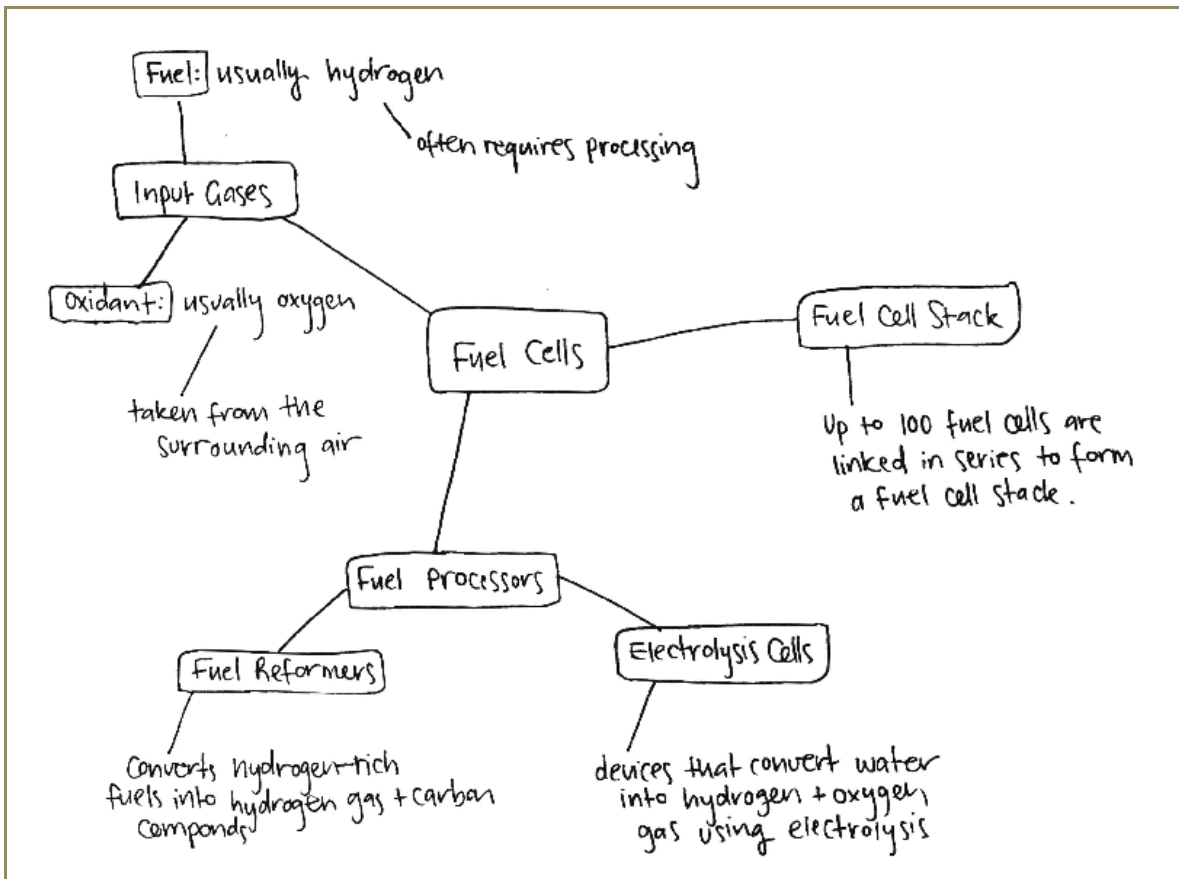 Fuel: usually hydrogen
often requires processing
Input Gases
Oxidant: usually oxygen
taken from the
surrounding air
Fuel Cells
Fuel Cell Stack
Up to 100 fuel cells are
linked in series to form
a fuel cell stack.
Fuel Processors
Fuel Reformers
converts hydrogen-rich
fuels into hydrogen gas + carbon
componds
Electrolysis Cells
devices that convert water
into hydrogen + oxygen
gas using electrolysis